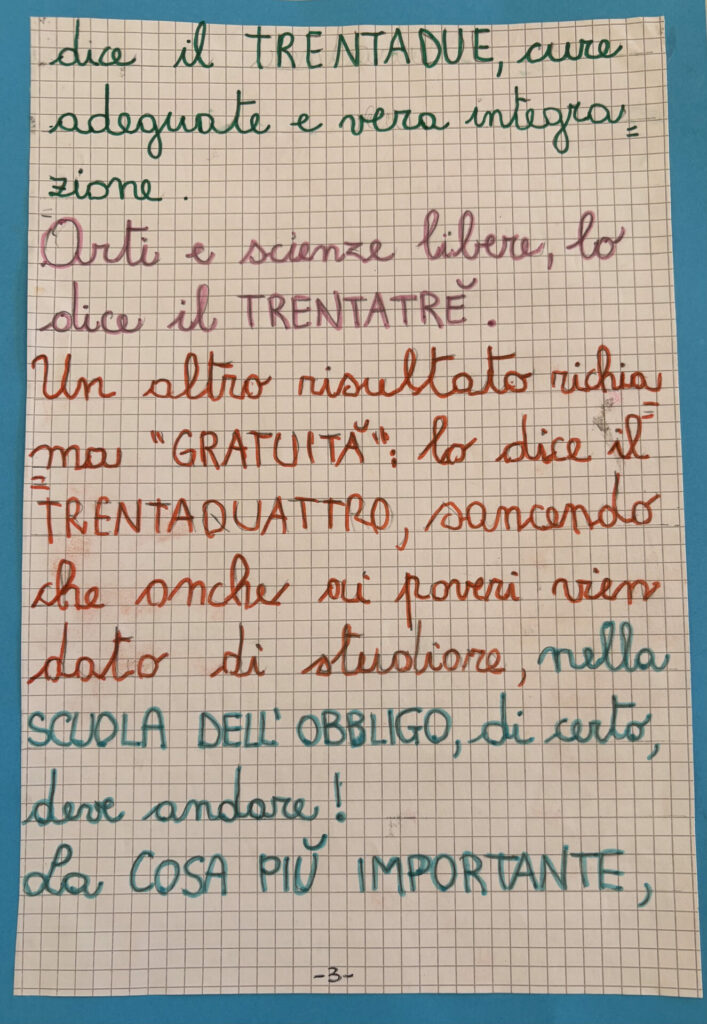 dice il TRENTADUE, cure
adeguate e vera integra=
zione.
Arti e scienze libere, lo
dice il TRENTATRĔ.
Un altro risultato richia=
=ma "GRATUITĂ": lo dice il
TRENTAQUATTRO, sancendo
che anche ai poveri vien
dato di studiare, nella
SCUOLA DELL'OBBLIGO, di certo,
deve andare!
La COSA PIŬ IMPORTANTE,
-3-